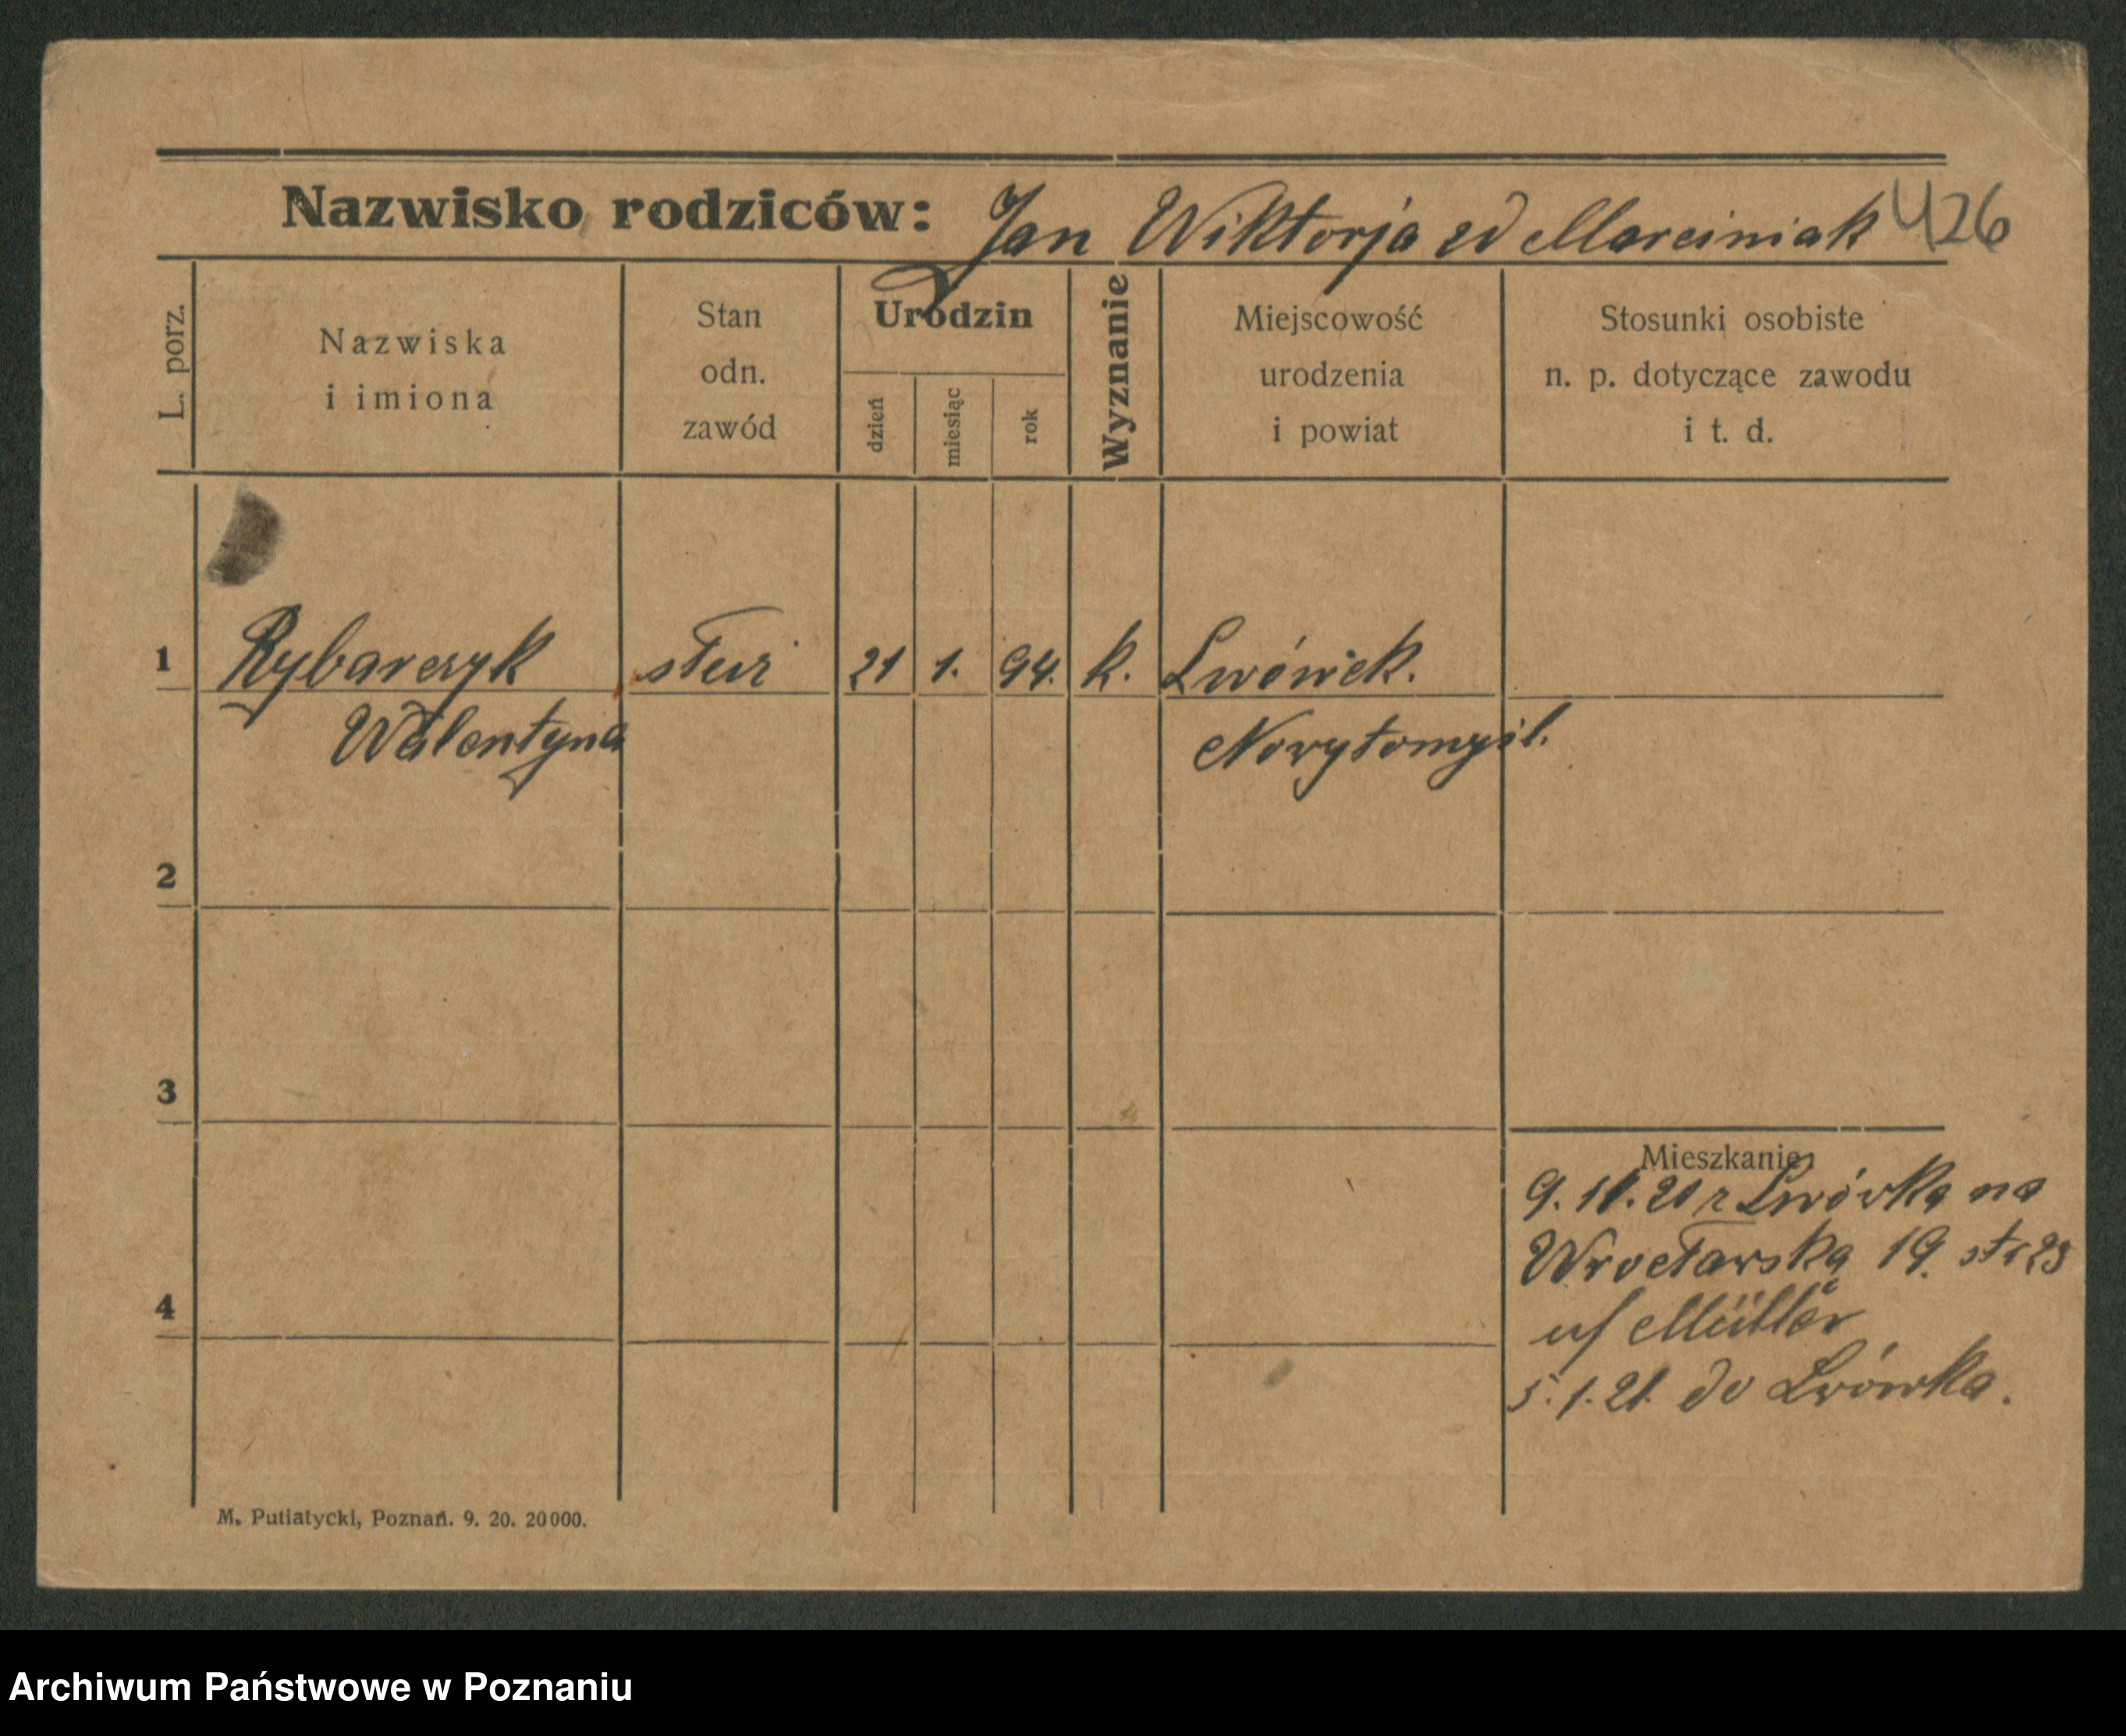 Nazwisko rodziców: Jan Wiktorja zd Marciniak 426
L. porz.
Nazwiska
i imiona
Stan
odn.
zawód
Urodzin
dzień
miesiąc
rok
Wyznanie
Miejscowość
urodzenia
i powiat
Stosunki osobiste
n. p. dotyczące zawodu
i t. d.
1 Rybarczyk 21 1. 94. k. Lwówek.
Walentyna Nowytomyśl.
2
3
4
Mieszkanie:
Lwówka na
Wrocławska 19.
u/ Müller
5.1.21. do Lwówka.
M. Putiatycki, Poznań. 9. 20. 20000.
Archiwum Państwowe w Poznaniu